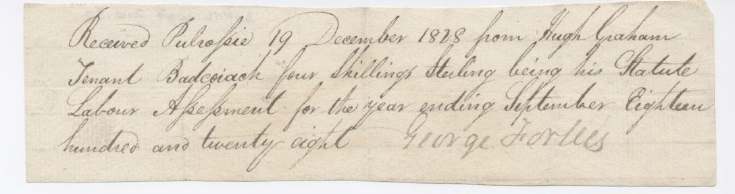 Received Pulrossie 19 December 1828 from Hugh Graham
Tenant Badcoiach four Shillings Sterling being his Statute
Labour Assessment for the year ending September Eighteen
hundred and twenty eight George Forbes